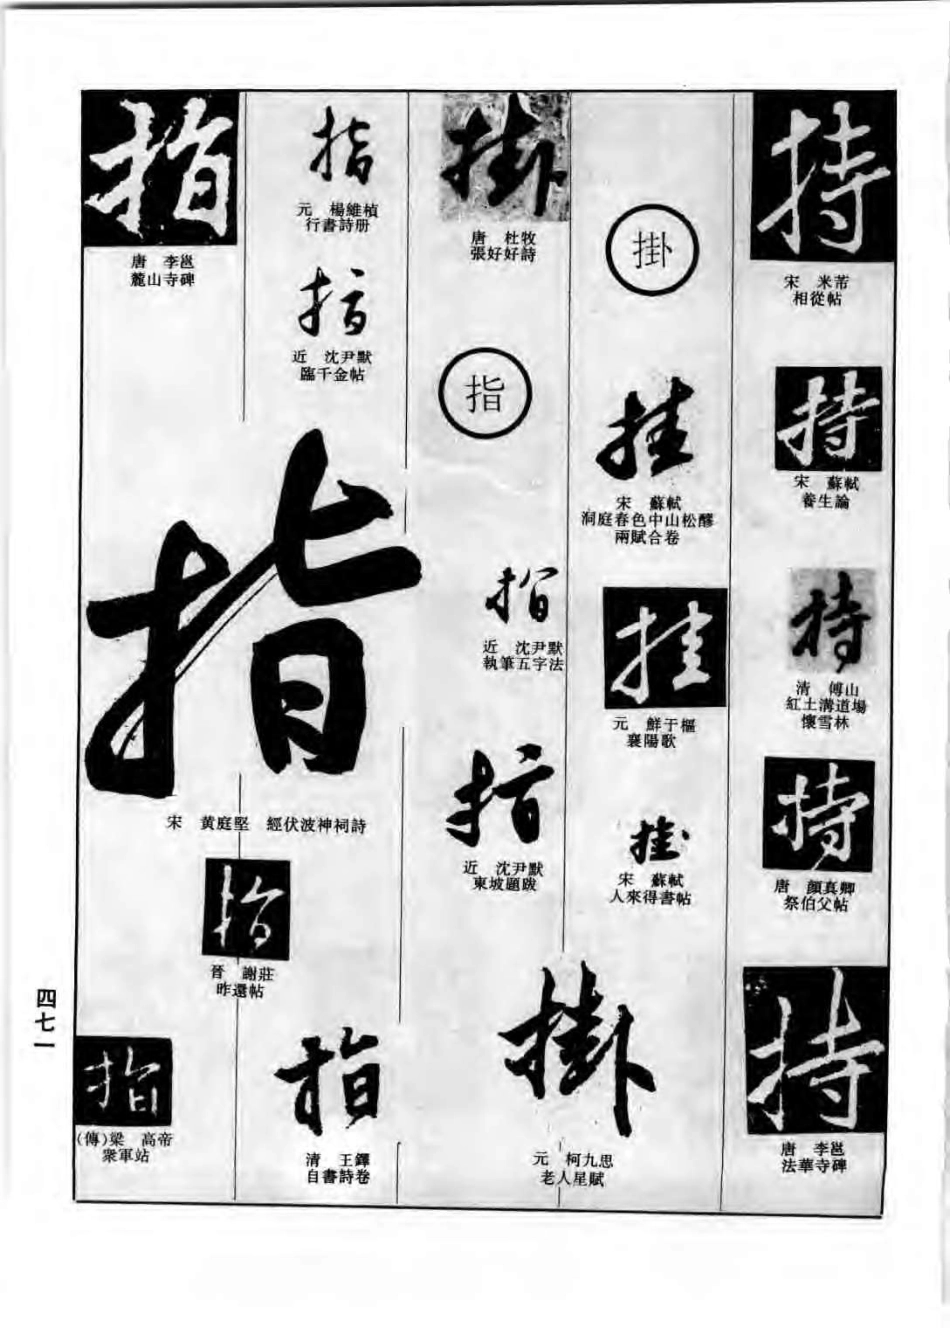 持
宋　米芾
相從帖
持
宋　蘇軾
養生論
持
清　傅山
紅土溝道場
懷雪林
持
唐　顏真卿
祭伯父帖
持
唐　李邕
法華寺碑
掛
挂
宋　蘇軾
洞庭春色中山松醪
兩賦合卷
挂
元　鮮于樞
襄陽歌
挂
宋　蘇軾
人來得書帖
掛
元　柯九思
老人星賦
掛
唐　杜牧
張好好詩
指
指
近　沈尹默
執筆五字法
指
近　沈尹默
東坡題跋
指
元　楊維楨
行書詩册
指
近　沈尹默
臨千金帖
指
宋　黄庭堅　經伏波神祠詩
指
晉　謝莊
昨還帖
指
清　王鐸
自書詩卷
指
唐　李邕
麓山寺碑
指
(傳)梁　高帝
衆軍站
四七一